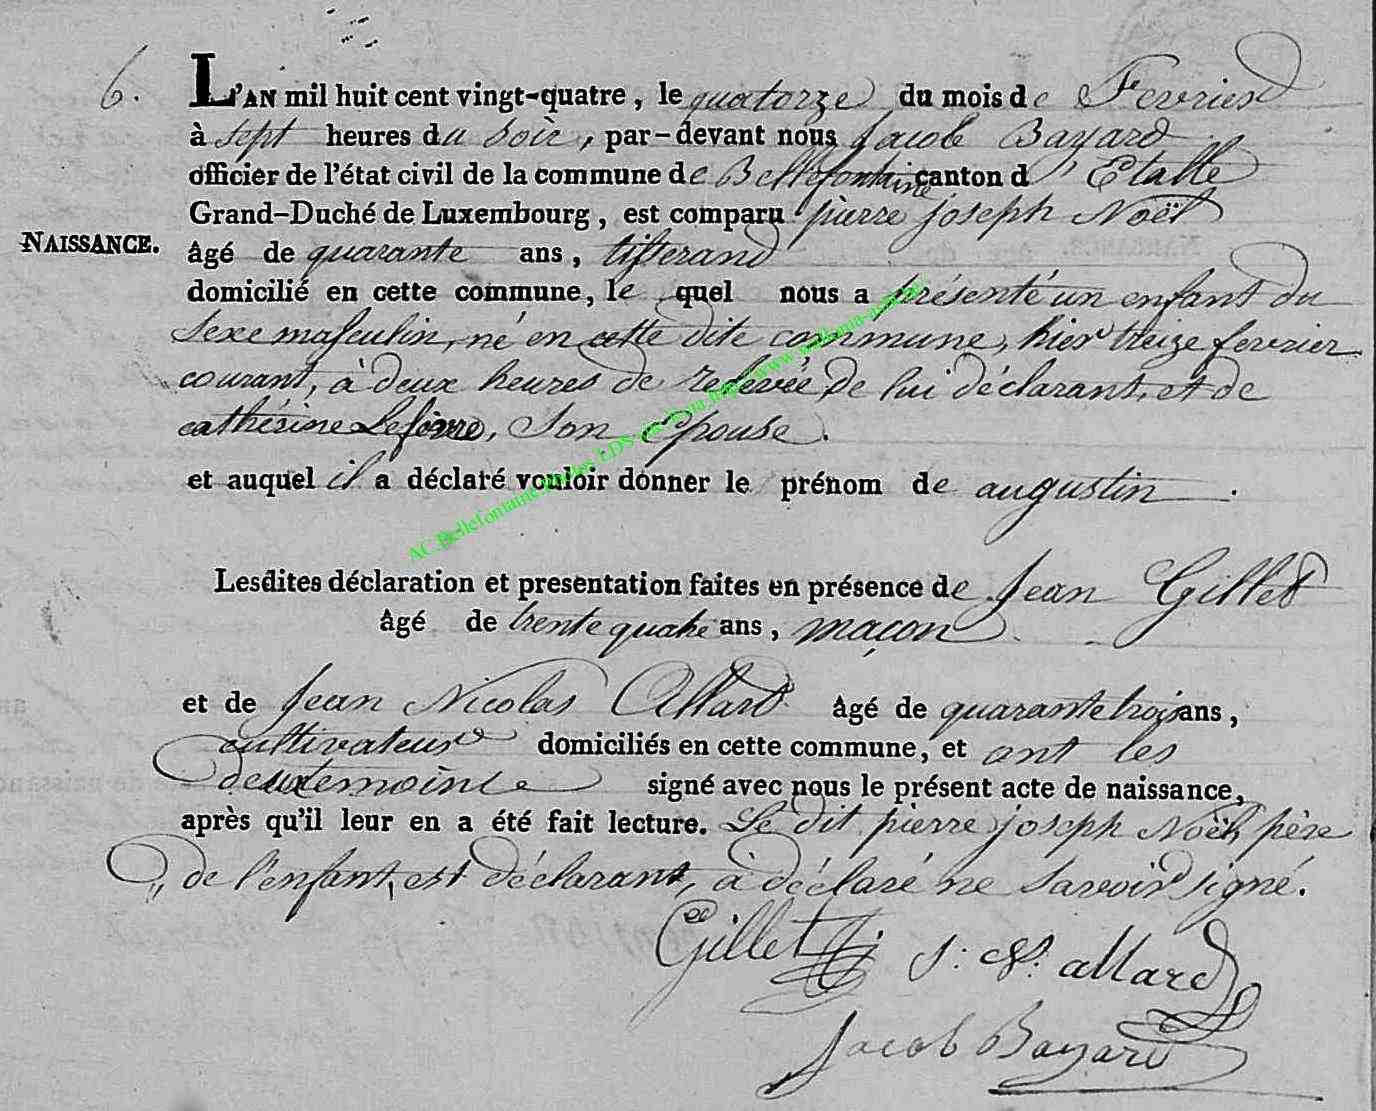 6.
L'AN mil huit cent vingt-quatre, le quatorze du mois de Fevrier
à sept heures du soir, par-devant nous Jacob Bayard
officier de l'état civil de la commune de Bellefontaine canton d'Etalle
Grand-Duché de Luxembourg, est comparu pierre joseph Noël
NAISSANCE.
âgé de quarante ans, tisserand
domicilié en cette commune, le quel nous a présenté un enfant du
sexe masculin, né en cette dite commune, hier treize fevrier
courant, à deux heures de relevée, de lui déclarant, et de
cathérine Lefèvre, Son Epouse.
et auquel il a déclaré vouloir donner le prénom de augustin.
Lesdites déclaration et presentation faites en présence de Jean Gillet
âgé de trente quatre ans, maçon
et de Jean Nicolas Allard âgé de quarante trois ans,
cultivateur domiciliés en cette commune, et ont les
deux temoins signé avec nous le présent acte de naissance,
après qu'il leur en a été fait lecture. Le dit pierre joseph Noël, père
de l'enfant, est déclarant, à déclaré ne savoir signé.
Gillet
J: N: allard
Jacob Bayard
AC Bellefontaine